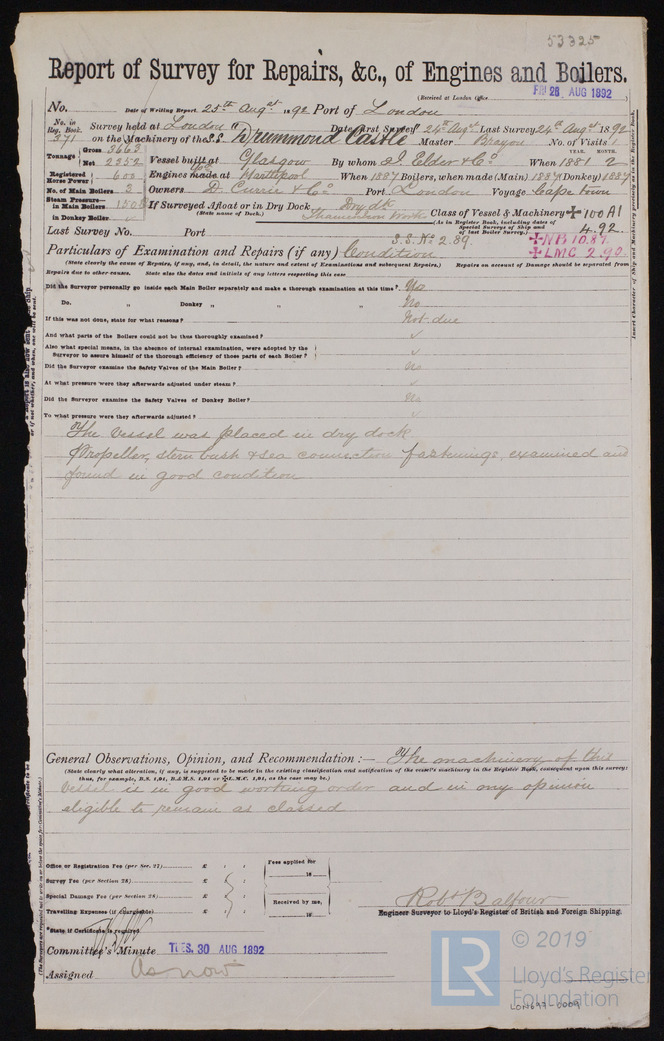 53325
Report of Survey for Repairs, &c., of Engines and Boilers.
(Received at London Office FRI 26 AUG 1892)
No. Date of Writing Report 25th Augst 1892 Port of London
No. in Reg. Book. 371 Survey held at London Date, First Survey 24th Augst Last Survey 24th Augst 1892
on the Machinery of the S.S. "Drummond Castle" Master No. of Visits 1
Tonnage Gross 3663 Net 2352 Vessel built at Glasgow By whom J. Elder & Co. When 1881 2
Registered Horse Power 600 Engines made at When 1887 Boilers, when made (Main) 1887 (Donkey) 1887
No. of Main Boilers 3 Owners D. Currie & Co. Port London Voyage Cape town
Steam Pressure in Main Boilers 150 If Surveyed Afloat or in Dry Dock Dry dk
(State name of Dock.) Class of Vessel & Machinery ✠ 100 A1
in Donkey Boiler ✓ (As in Register Book, including dates of Special Surveys of Ship and of last Boiler Survey.) 4.92
Last Survey No. Port S.S. No 2.89. ✠ NB 10.87
✠ LMC 2.90.
Particulars of Examination and Repairs (if any) Condition
(State clearly the cause of Repairs, if any, and, in detail, the nature and extent of Examinations and subsequent Repairs.) Repairs on account of Damage should be separated from
Repairs due to other causes. State also the dates and initials of any letters respecting this case
Did the Surveyor personally go inside each Main Boiler separately and make a thorough examination at this time? No
Do. " Donkey " " " No
If this was not done, state for what reasons? Not due
And what parts of the Boilers could not be thoroughly examined? ✓
Also what special means, in the absence of internal examination, were adopted by the
Surveyor to assure himself of the thorough efficiency of those parts of each Boiler? ✓
Did the Surveyor examine the Safety Valves of the Main Boiler? No
At what pressure were they afterwards adjusted under steam? ✓
Did the Surveyor examine the Safety Valves of Donkey Boiler? No
To what pressure were they afterwards adjusted? ✓
The vessel was placed in dry dock
Propeller, stern bush & sea connection fastenings, examined and
found in good condition
General Observations, Opinion, and Recommendation :— The machinery of this
(State clearly what alteration, if any, is suggested to be made in the existing classification and notification of the vessel's machinery in the Register Book, consequent upon this survey:
thus, for example, B.S. 1,91, B.&M.S. 1,91 or ✠L.M.C. 1,91, as the case may be.)
vessel is in good working order and in my opinion
eligible to remain as classed
Office or Registration Fee (per Sec. 27) £ : : Fees applied for
18
Survey Fee (per Section 28) £ : :
Special Damage Fee (per Section 28) £ : : Received by me,
Travelling Expenses (if chargeable) £ : : 18
Robt Balfour
Engineer Surveyor to Lloyd's Register of British and Foreign Shipping.
*State if Certificate is required
Committee's Minute TUES. 30 AUG 1892
Assigned As now
LR
© 2019
Lloyd's Register
Foundation
LON697-0009